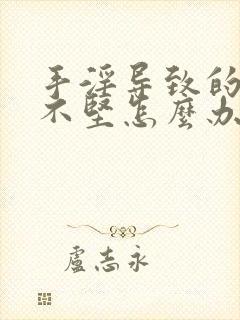 手淫导致的
不堅怎麼办
盧志永